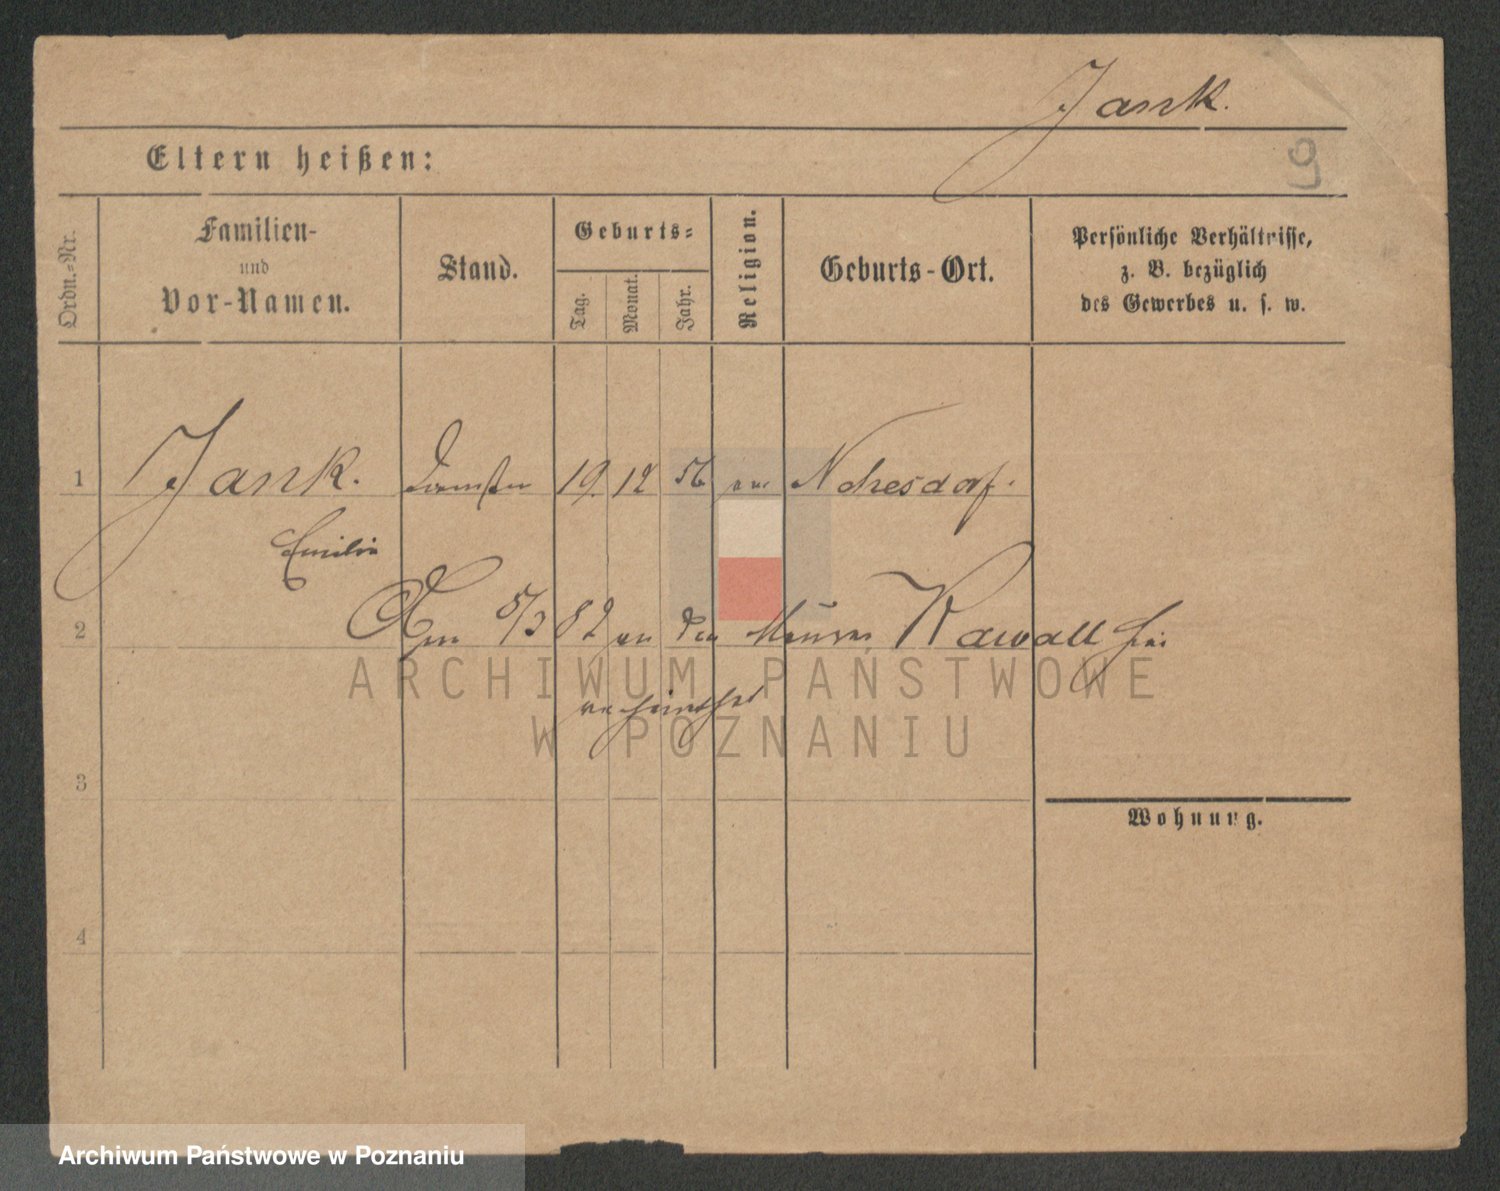 Jank.
9
Eltern heißen:
Ordn.-Nr.
Familien-
und
Vor-Namen.
Stand.
Geburts-
Tag.
Monat.
Jahr.
Religion.
Geburts-Ort.
Persönliche Verhältnisse,
z. B. bezüglich
des Gewerbes u. s. w.
1 Jank. 19. 12 56 ev
Emilie
2 Am 5/3 82 an den Maurer Kawall hier
verheirathet
3
Wohnung.
4
ARCHIWUM PAŃSTWOWE
W POZNANIU
Archiwum Państwowe w Poznaniu